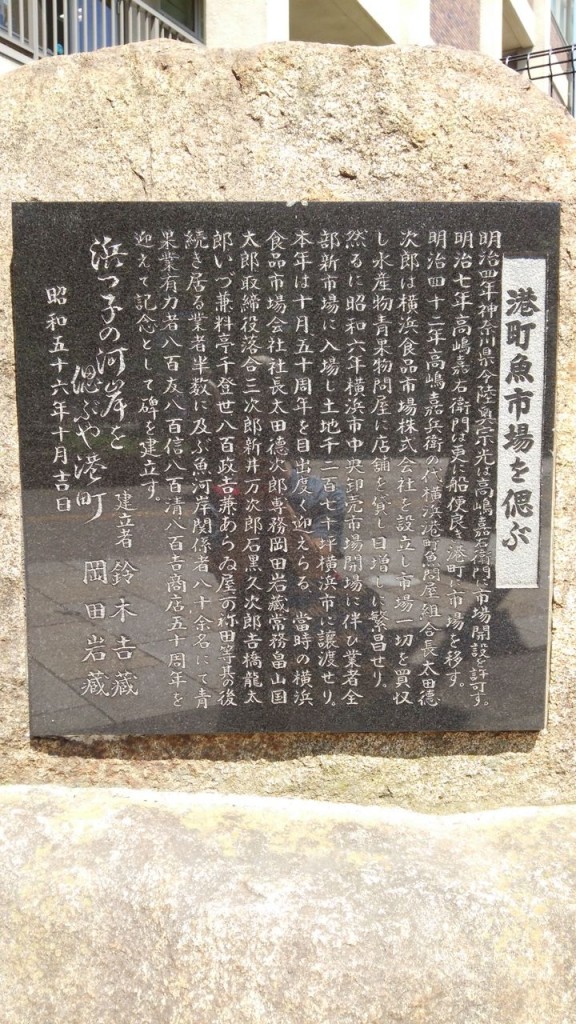 港町魚市場を偲ぶ
明治四年神奈川県令陸奥宗光は高嶋嘉右衛門に市場開設を許可す。
明治七年高嶋嘉右衛門は更に船便良き港町に市場を移す。
明治四十二年高嶋嘉兵衛の代横浜港町魚問屋組合長太田徳
次郎は横浜食品市場株式会社を設立し市場一切を買収
し水産物青果物問屋に店舗を貸し日増しに繁昌せり。
然るに昭和六年横浜市中央卸売市場開場に伴ひ業者全
部新市場に入場し土地千二百七十坪横浜市に譲渡せり。
本年は十月五十周年を目出度く迎えらる、當時の横浜
食品市場会社社長太田徳次郎専務岡田岩藏常務畠山国
太郎取締役落合三次郎新井万次郎石黒久次郎吉橋龍太
郎いづ兼料亭千登世八百政吉兼あらゐ屋の祢田等其の後
続き居る業者半数に及ぶ魚河岸関係者八十余名にて青
果業有力者八百友八百信八百清八百吉商店五十周年を
迎えて記念として碑を建立す。
浜っ子の河岸を
偲ぶや港町
昭和五十六年十月吉日
建立者 鈴木吉藏
岡田岩藏